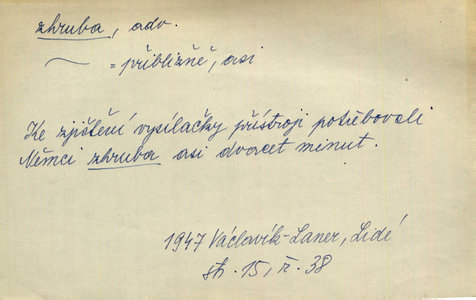 zhruba, adv.
= přibližně, asi
Ke zjištění vysílačky přístroji potřebovali
Němci zhruba asi dvacet minut.
1947 Václavík-Laner, Lidé
str. 15, ř. 38